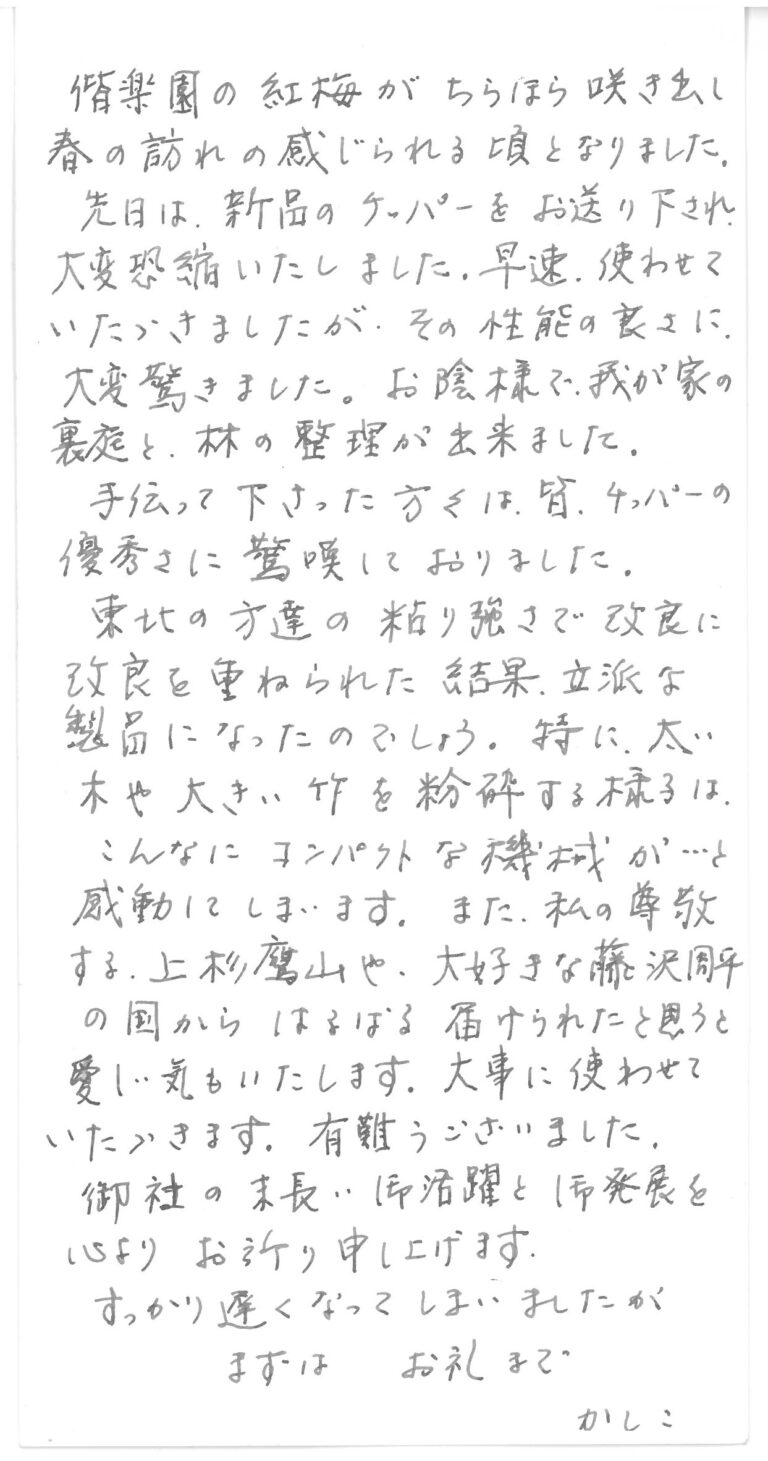 偕楽園の紅梅がちらほら咲き出し
春の訪れの感じられる頃となりました。
先日は、新品のチッパーをお送り下され、
大変恐縮いたしました。早速、使わせて
いたゞきましたが、その性能の良さに、
大変驚きました。お陰様で、我が家の
裏庭と、林の整理が出来ました。
手伝って下さった方々は、皆、チッパーの
優秀さに驚嘆しておりました。
東北の方達の粘り強さで改良に
改良を重ねられた結果、立派な
製品になったのでしょう。特に、太い
木や大きい竹を粉砕する様子は、
こんなにコンパクトな機械が…と
感動してしまいます。また、私の尊敬
する、上杉鷹山や、大好きな藤沢周平
の国からはるばる届けられたと思うと
愛しい気もいたします。大事に使わせて
いたゞきます。有難うございました。
御社の末長い御活躍と御発展を
心よりお祈り申し上げます。
すっかり遅くなってしまいましたが
まずは お礼まで
かしこ